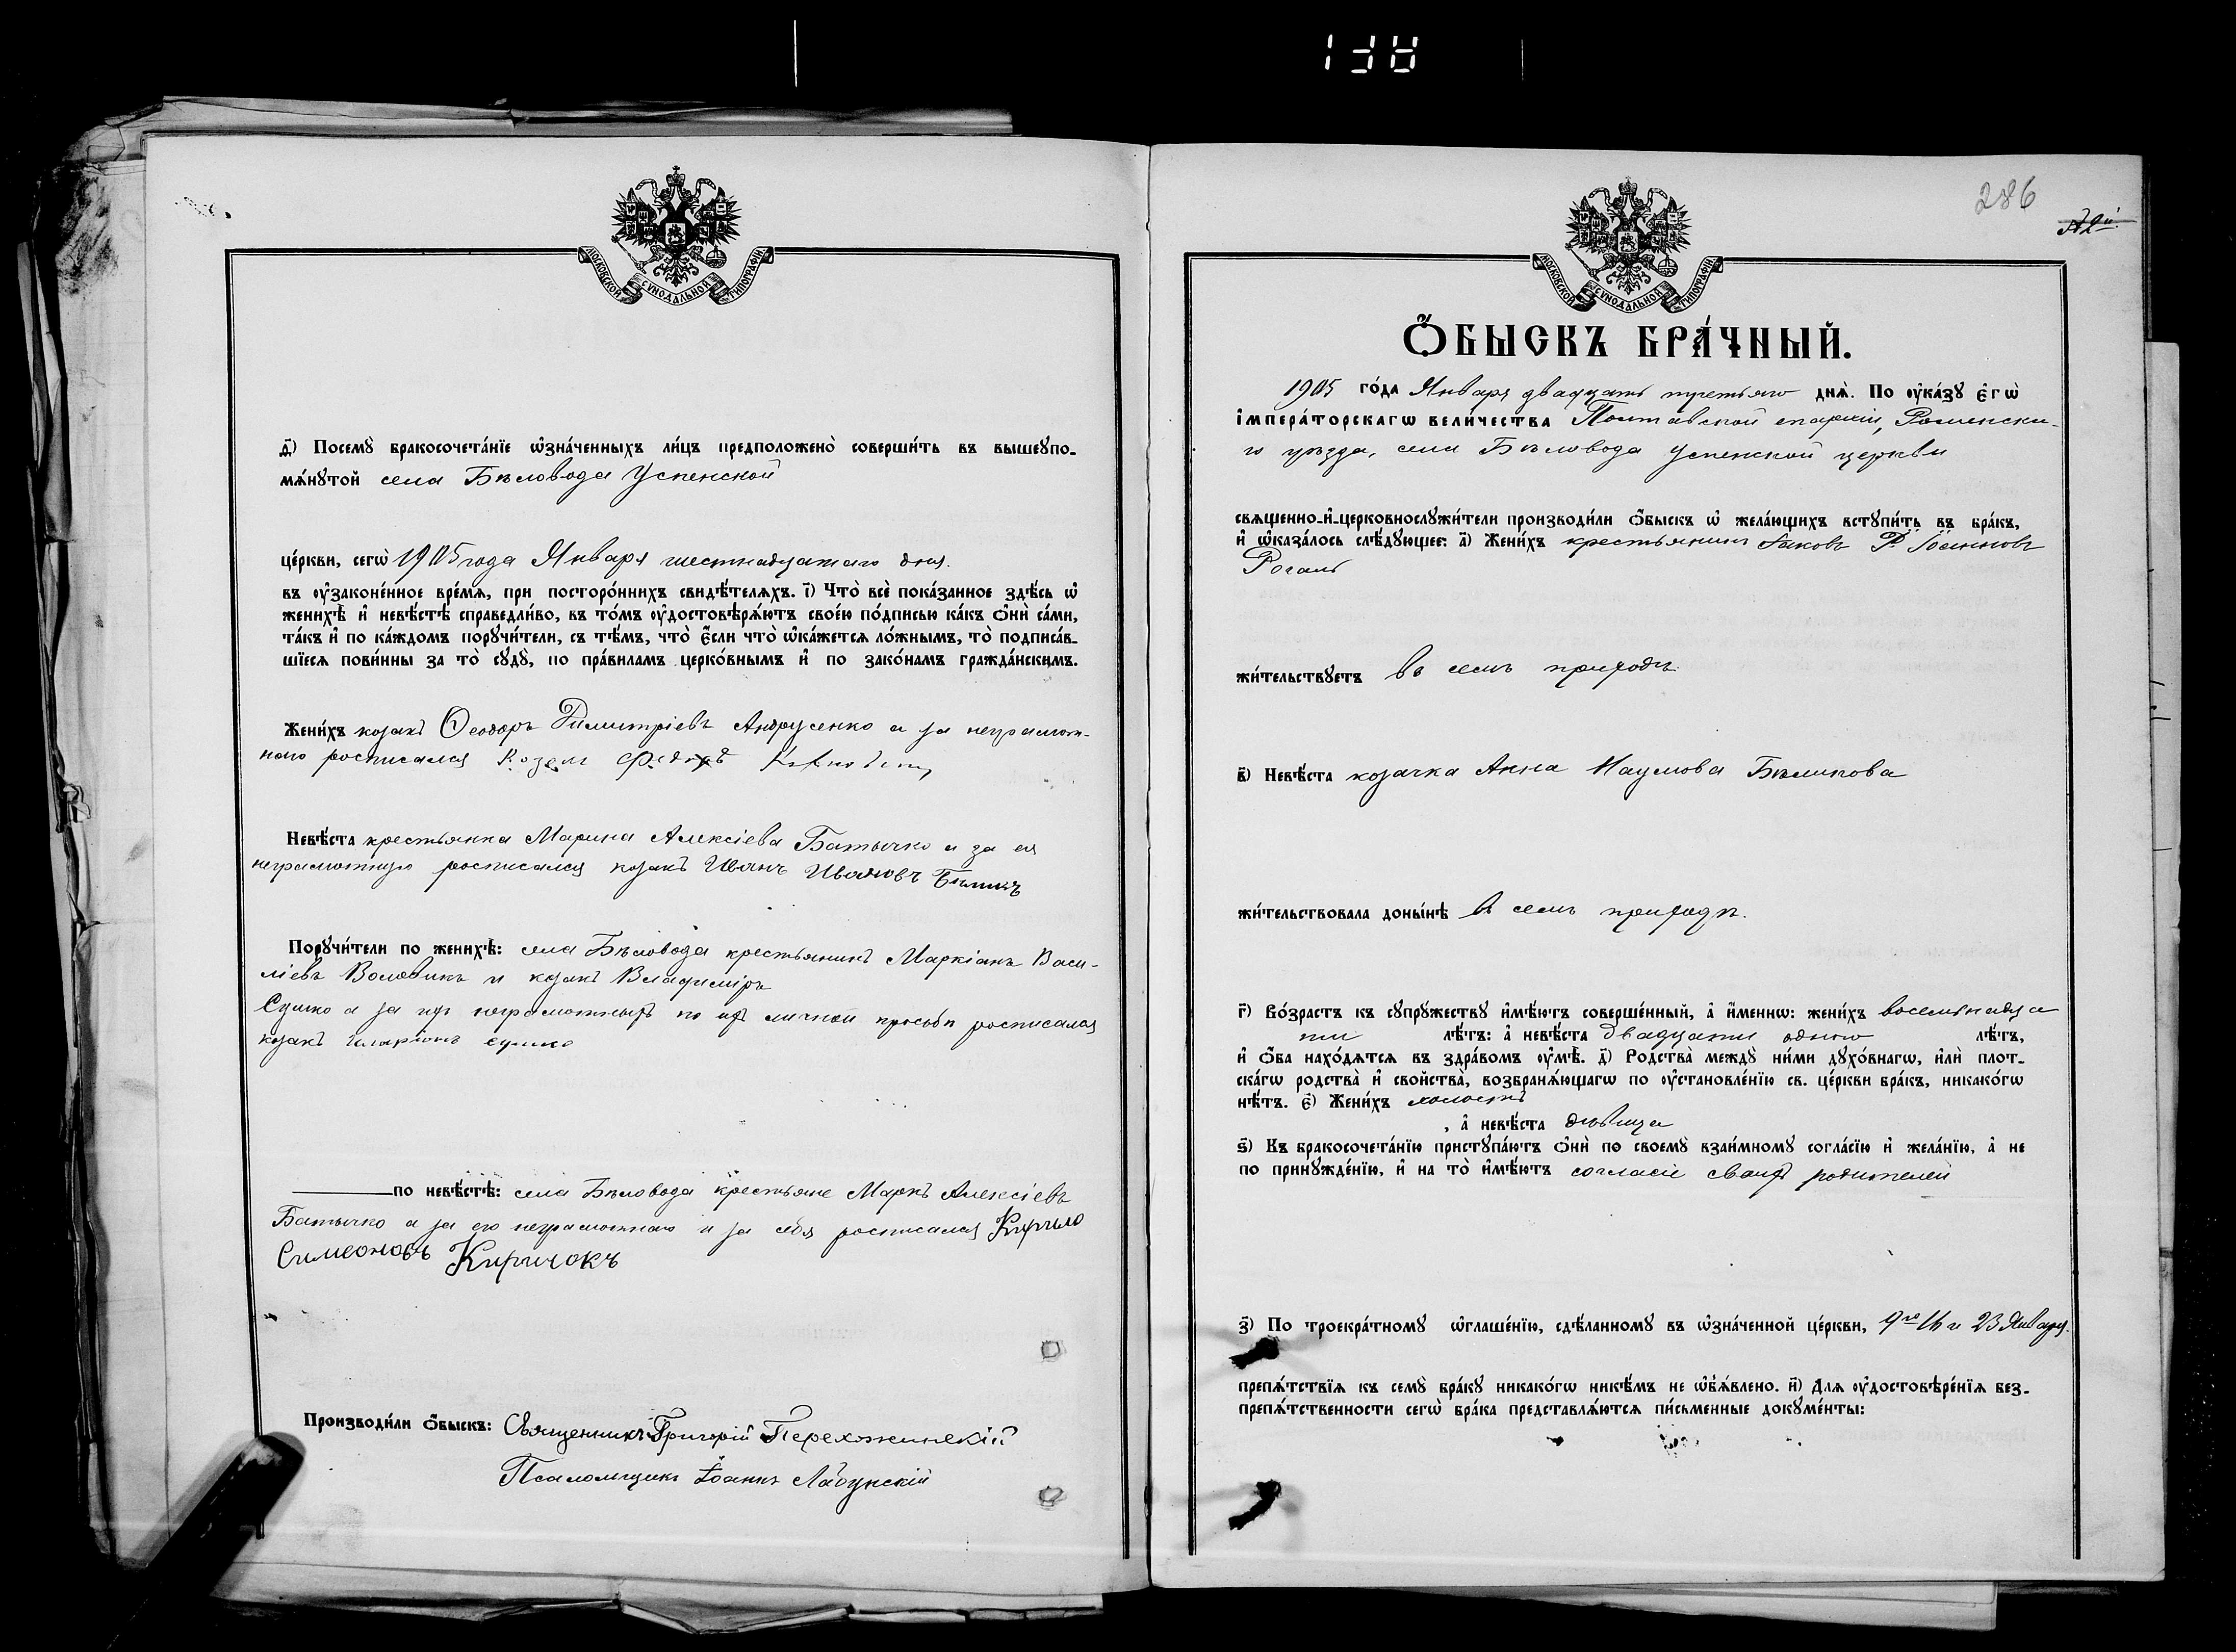 МОСКОВСКОЙ СѴНОДАЛЬНОЙ ТИПОГРАФІИ.
д҃) Посемꙋ̀ бракосочета́нїе ѡ҆зна́ченныхъ ли́цъ предположено̀ соверши́ть въ вышеꙋпо-
мѧ́нꙋтой села Бѣловода Успенской
це́ркви, сегѡ̀ 1905 года Января шестнадцатаго дня.
въ ᲂу҆законе́нное вре́мѧ, при посторо́ннихъ свидѣ́телѧхъ. і҃) Что̀ всѐ пока́занное здѣ́сь ѡ҆
женихѣ̀ и҆ невѣ́стѣ справедли́во, въ то́мъ ᲂу҆достовѣрѧ́ютъ свое́ю по́дписью ка́къ ѻ҆нѝ са́ми,
та́къ и҆ по ка́ждомъ порꙋчи́тели, съ тѣ́мъ, что̀ є҆́сли что̀ ѡ҆ка́жетсѧ ло́жнымъ, то̀ подписа́в-
шїесѧ пови́нны за то̀ сꙋдꙋ̀, по пра́виламъ церко́внымъ и҆ по зако́намъ гражда́нскимъ.
Жени́хъ козакъ Ѳеодоръ Димитріевъ Андрусенко а за неграмот-
наго росписался Козакъ
Невѣ́ста крестьянка Марина Алексіева Батычко а за ея
неграмотную росписался козакъ Иванъ Ивановъ Бѣликъ
Порꙋчи́тели по женихѣ̀: села Бѣловода крестьянинъ Маркіанъ Васи-
ліевъ Воловикъ и козакъ Владиміръ
Сушко а за ихъ неграмотныхъ по ихъ личной просьбѣ росписался
козакъ Иларіонъ Сушко
по невѣ́стѣ: села Бѣловода крестьяне Маркъ Алексіевъ
Батычко а за его неграмотнаго и за себя росписался Кирило
Симеоновъ Киричокъ
Производи́ли ѻ҆́быскъ: Священникъ Григорій
Псаломщикъ Іоаннъ Лабунскій
286
МОСКОВСКОЙ СѴНОДАЛЬНОЙ ТИПОГРАФІИ.
Ѻ҆́БЫСКЪ БРА́ЧНЫЙ.
1905 го́да Января двадцать третьяго днѧ̀. По ᲂу҆ка́зꙋ є҆гѡ̀
і҆мпера́торскагѡ вели́чества Полтавской епархіи, Роменска-
го уѣзда, села Бѣловода Успенской церкви
свѧще́нно-и҆-церковнослꙋжи́тели производи́ли ѻ҆́быскъ ѡ҆ жела́ющихъ встꙋпи́ть въ бра́къ,
и҆ ѡ҆каза́лось слѣ́дꙋющее: а҃) Жени́хъ крестьянинъ Іаковъ Іоанновъ
Рогаль
жи́тельствꙋетъ въ семъ приходѣ.
в҃) Невѣ́ста козачка Анна Наумова Бѣликова
жи́тельствовала доны́нѣ въ семъ приходѣ.
г҃) Во́зрастъ къ сꙋпрꙋ́жествꙋ и҆мѣ́ютъ соверше́нный, а҆ и҆́меннѡ: жени́хъ восемьнадца
ти лѣ́тъ: а҆ невѣ́ста двадцати одного лѣ́тъ,
и҆ ѻ҆́ба нахо́дѧтсѧ въ здра́вомъ ᲂу҆мѣ̀. д҃) Родства̀ междꙋ̀ ни́ми дꙋхо́внагѡ, и҆лѝ плот-
ска́гѡ родства̀ и҆ свойства̀, возбранѧ́ющагѡ по ᲂу҆становле́нїю св. це́ркви бра́къ, никако́гѡ
нѣ́тъ. є҃) Жени́хъ холостъ
, а҆ невѣ́ста дѣвица
ѕ҃) Къ бракосочета́нїю пристꙋпа́ютъ ѻ҆нѝ по своемꙋ̀ взаи́мномꙋ согла́сїю и҆ жела́нїю, а҆ не
по принꙋжде́нїю, и҆ на то̀ и҆мѣ́ютъ согласіе своихъ родителей
з҃) По троекра́тномꙋ ѡ҆глаше́нїю, сдѣ́ланномꙋ въ ѡ҆зна́ченной це́ркви, 9го 16 и 23 Января.
препѧ́тствїѧ къ семꙋ̀ бра́кꙋ никако́гѡ никѣ́мъ не ѡ҆б̾ѧ́влено. и҃) Длѧ ᲂу҆достовѣре́нїѧ без-
препѧ́тственности сегѡ̀ бра́ка представлѧ́ютсѧ пи́сьменные докꙋме́нты: